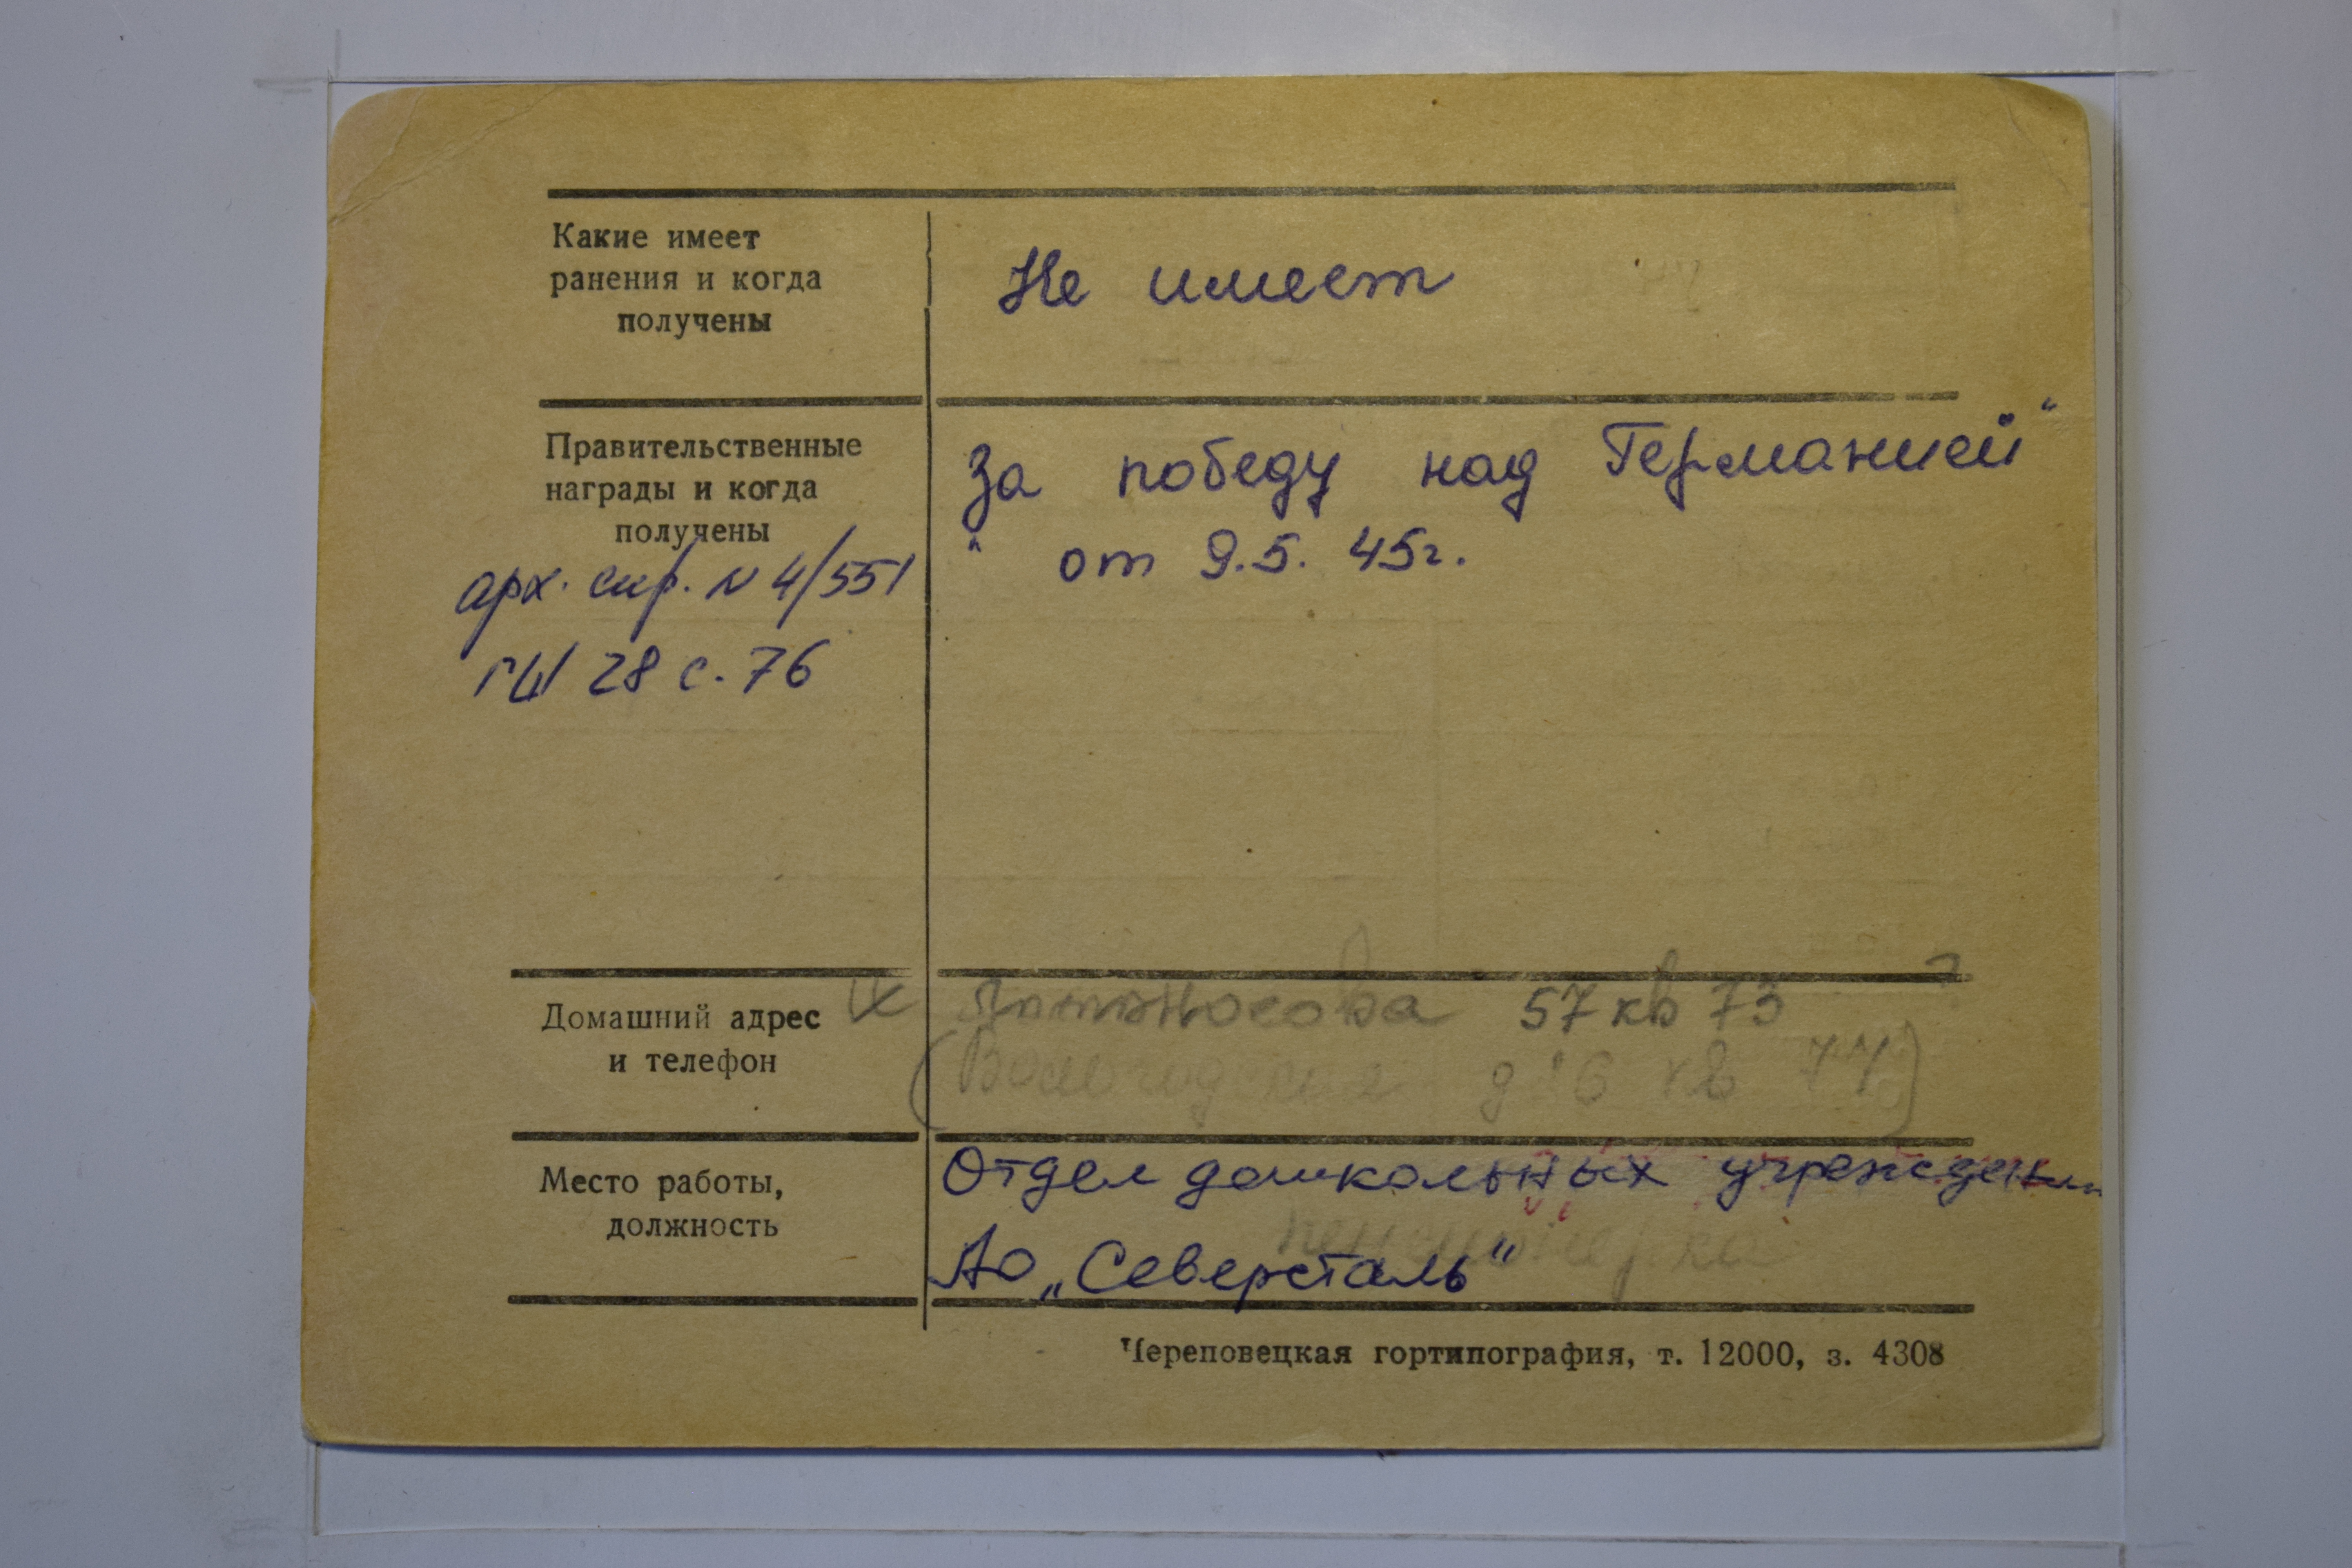 Какие имеет
ранения и когда
получены
Не имеет
Правительственные
награды и когда
получены
арх. спр. N 4/551
ГШ 28 с. 76
За победу над Германией"
" от 9.5. 45г.
Домашний адрес
и телефон
57 кв 73
кв 77)
Место работы,
должность
Отдел дошкольных учрежден
пенсионерка
АО „Северсталь"
Череповецкая гортипография, т. 12000, з. 4308